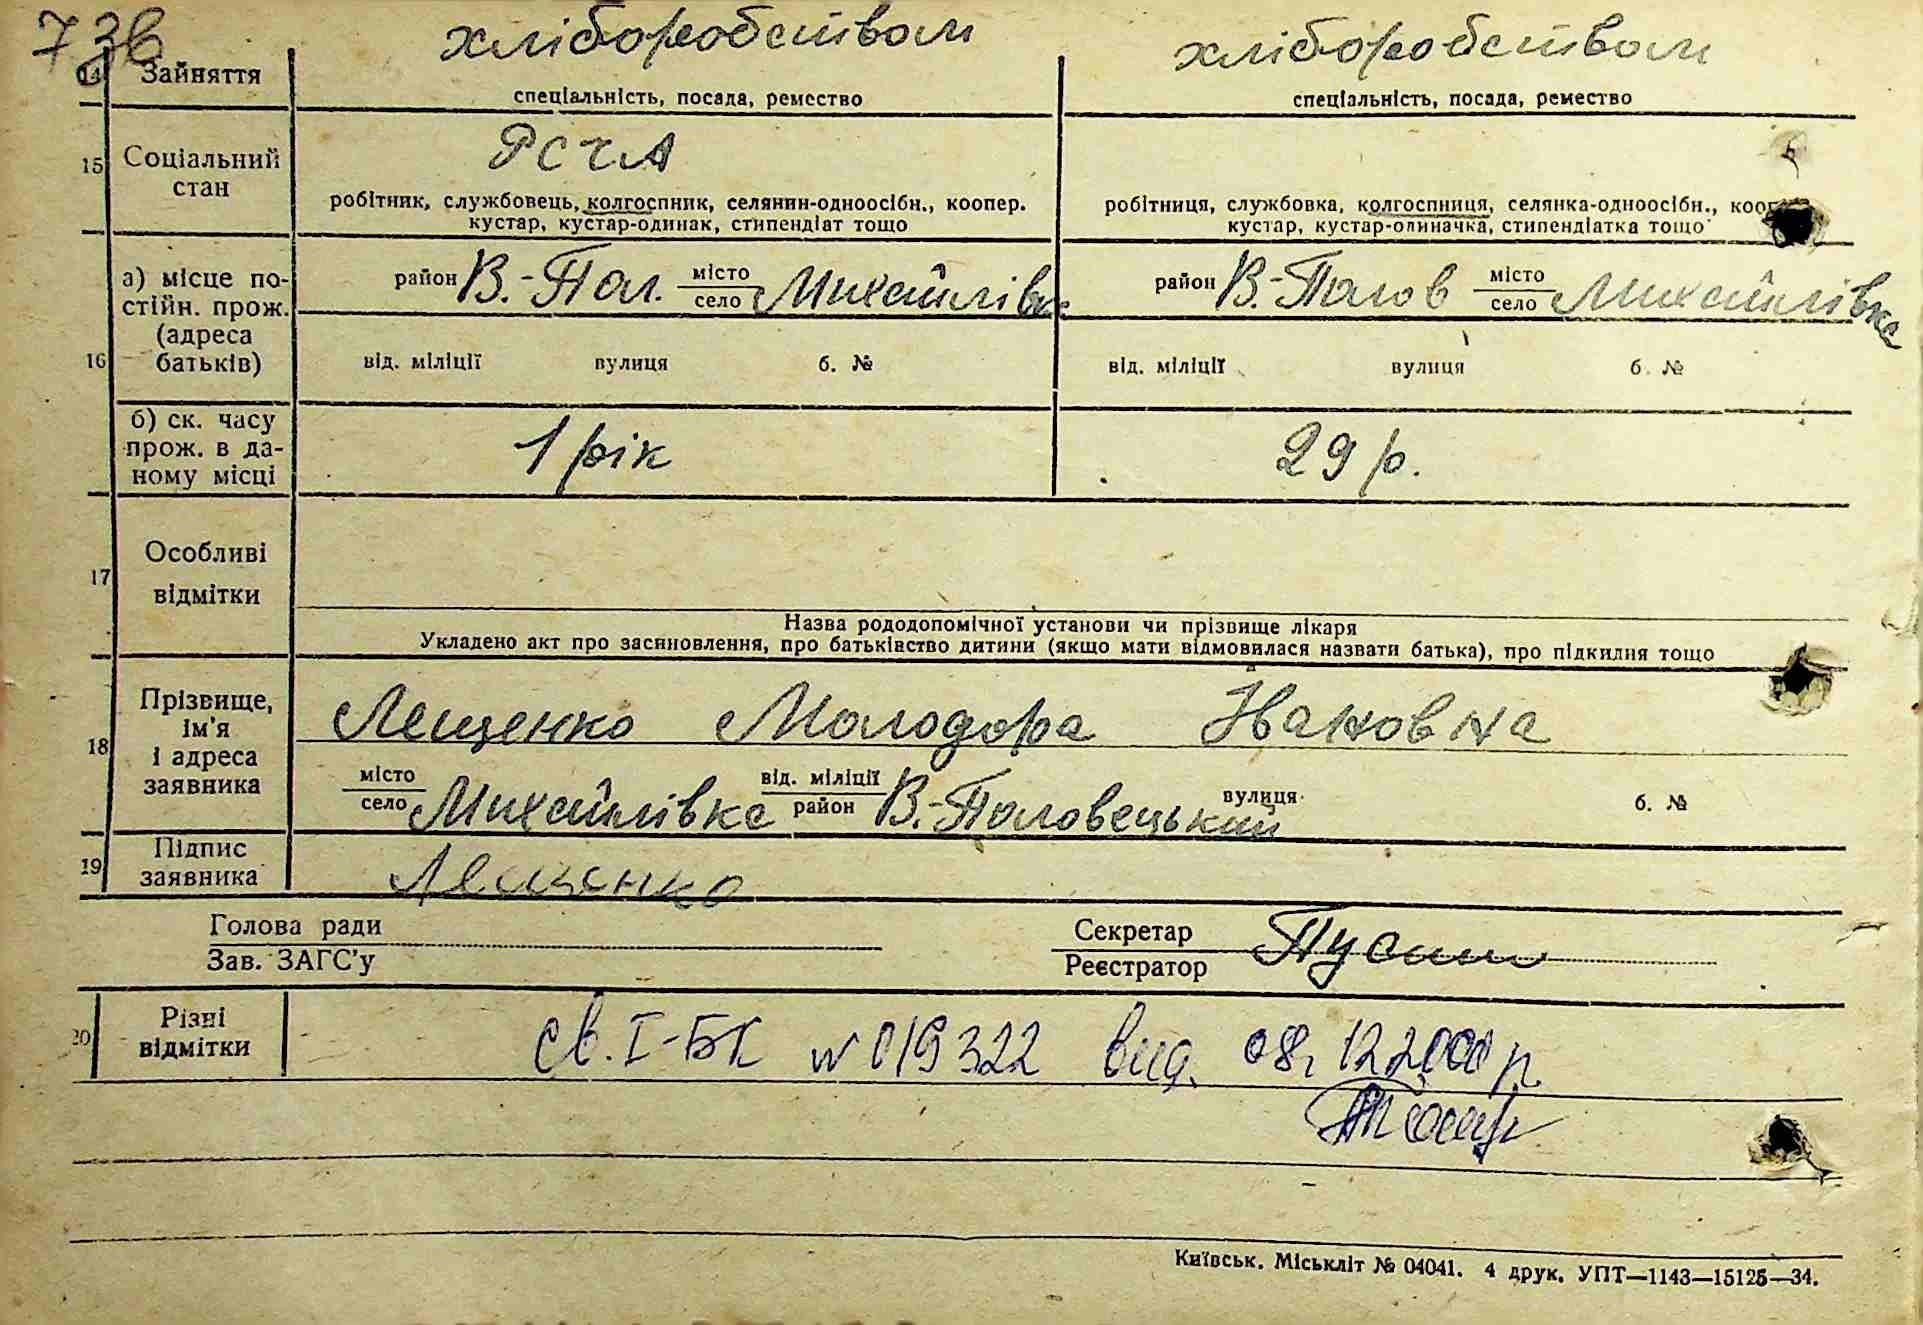 73в
хліборобством хліборобством
14 Зайняття
спеціальність, посада, ремество спеціальність, посада, ремество
РСЧА
15 Соціальний стан
робітник, службовець, колгоспник, селянин-одноосібн., коопер. робітниця, службовка, колгоспниця, селянка-одноосібн., кооп
кустар, кустар-одинак, стипендіат тощо кустар, кустар-одиначка, стипендіатка тощо
16 а) місце постійн. прож. (адреса батьків)
район В.-Пол. місто село Михайлівк район В.-Полов місто село Михайлівка
від. міліції вулиця б. № від. міліції вулиця б. №
б) ск. часу прож. в даному місці
1 рік 29 р.
17 Особливі відмітки
Назва рододопомічної установи чи прізвище лікаря
Укладено акт про засиновлення, про батьківство дитини (якщо мати відмовилася назвати батька), про підкидня тощо
18 Прізвище, ім'я і адреса заявника
Лещенко Молодора Івановна
місто село Михайлівка від. міліції район В.-Половецький вулиця б. №
19 Підпис заявника Лещенко
Голова ради Секретар
Зав. ЗАГС'у Реєстратор
20 Різні відмітки
св. І-БК № 019322 вид. 08.12.2000 р.
Київськ. Міськліт № 04041. 4 друк. УПТ—1143—15125—34.